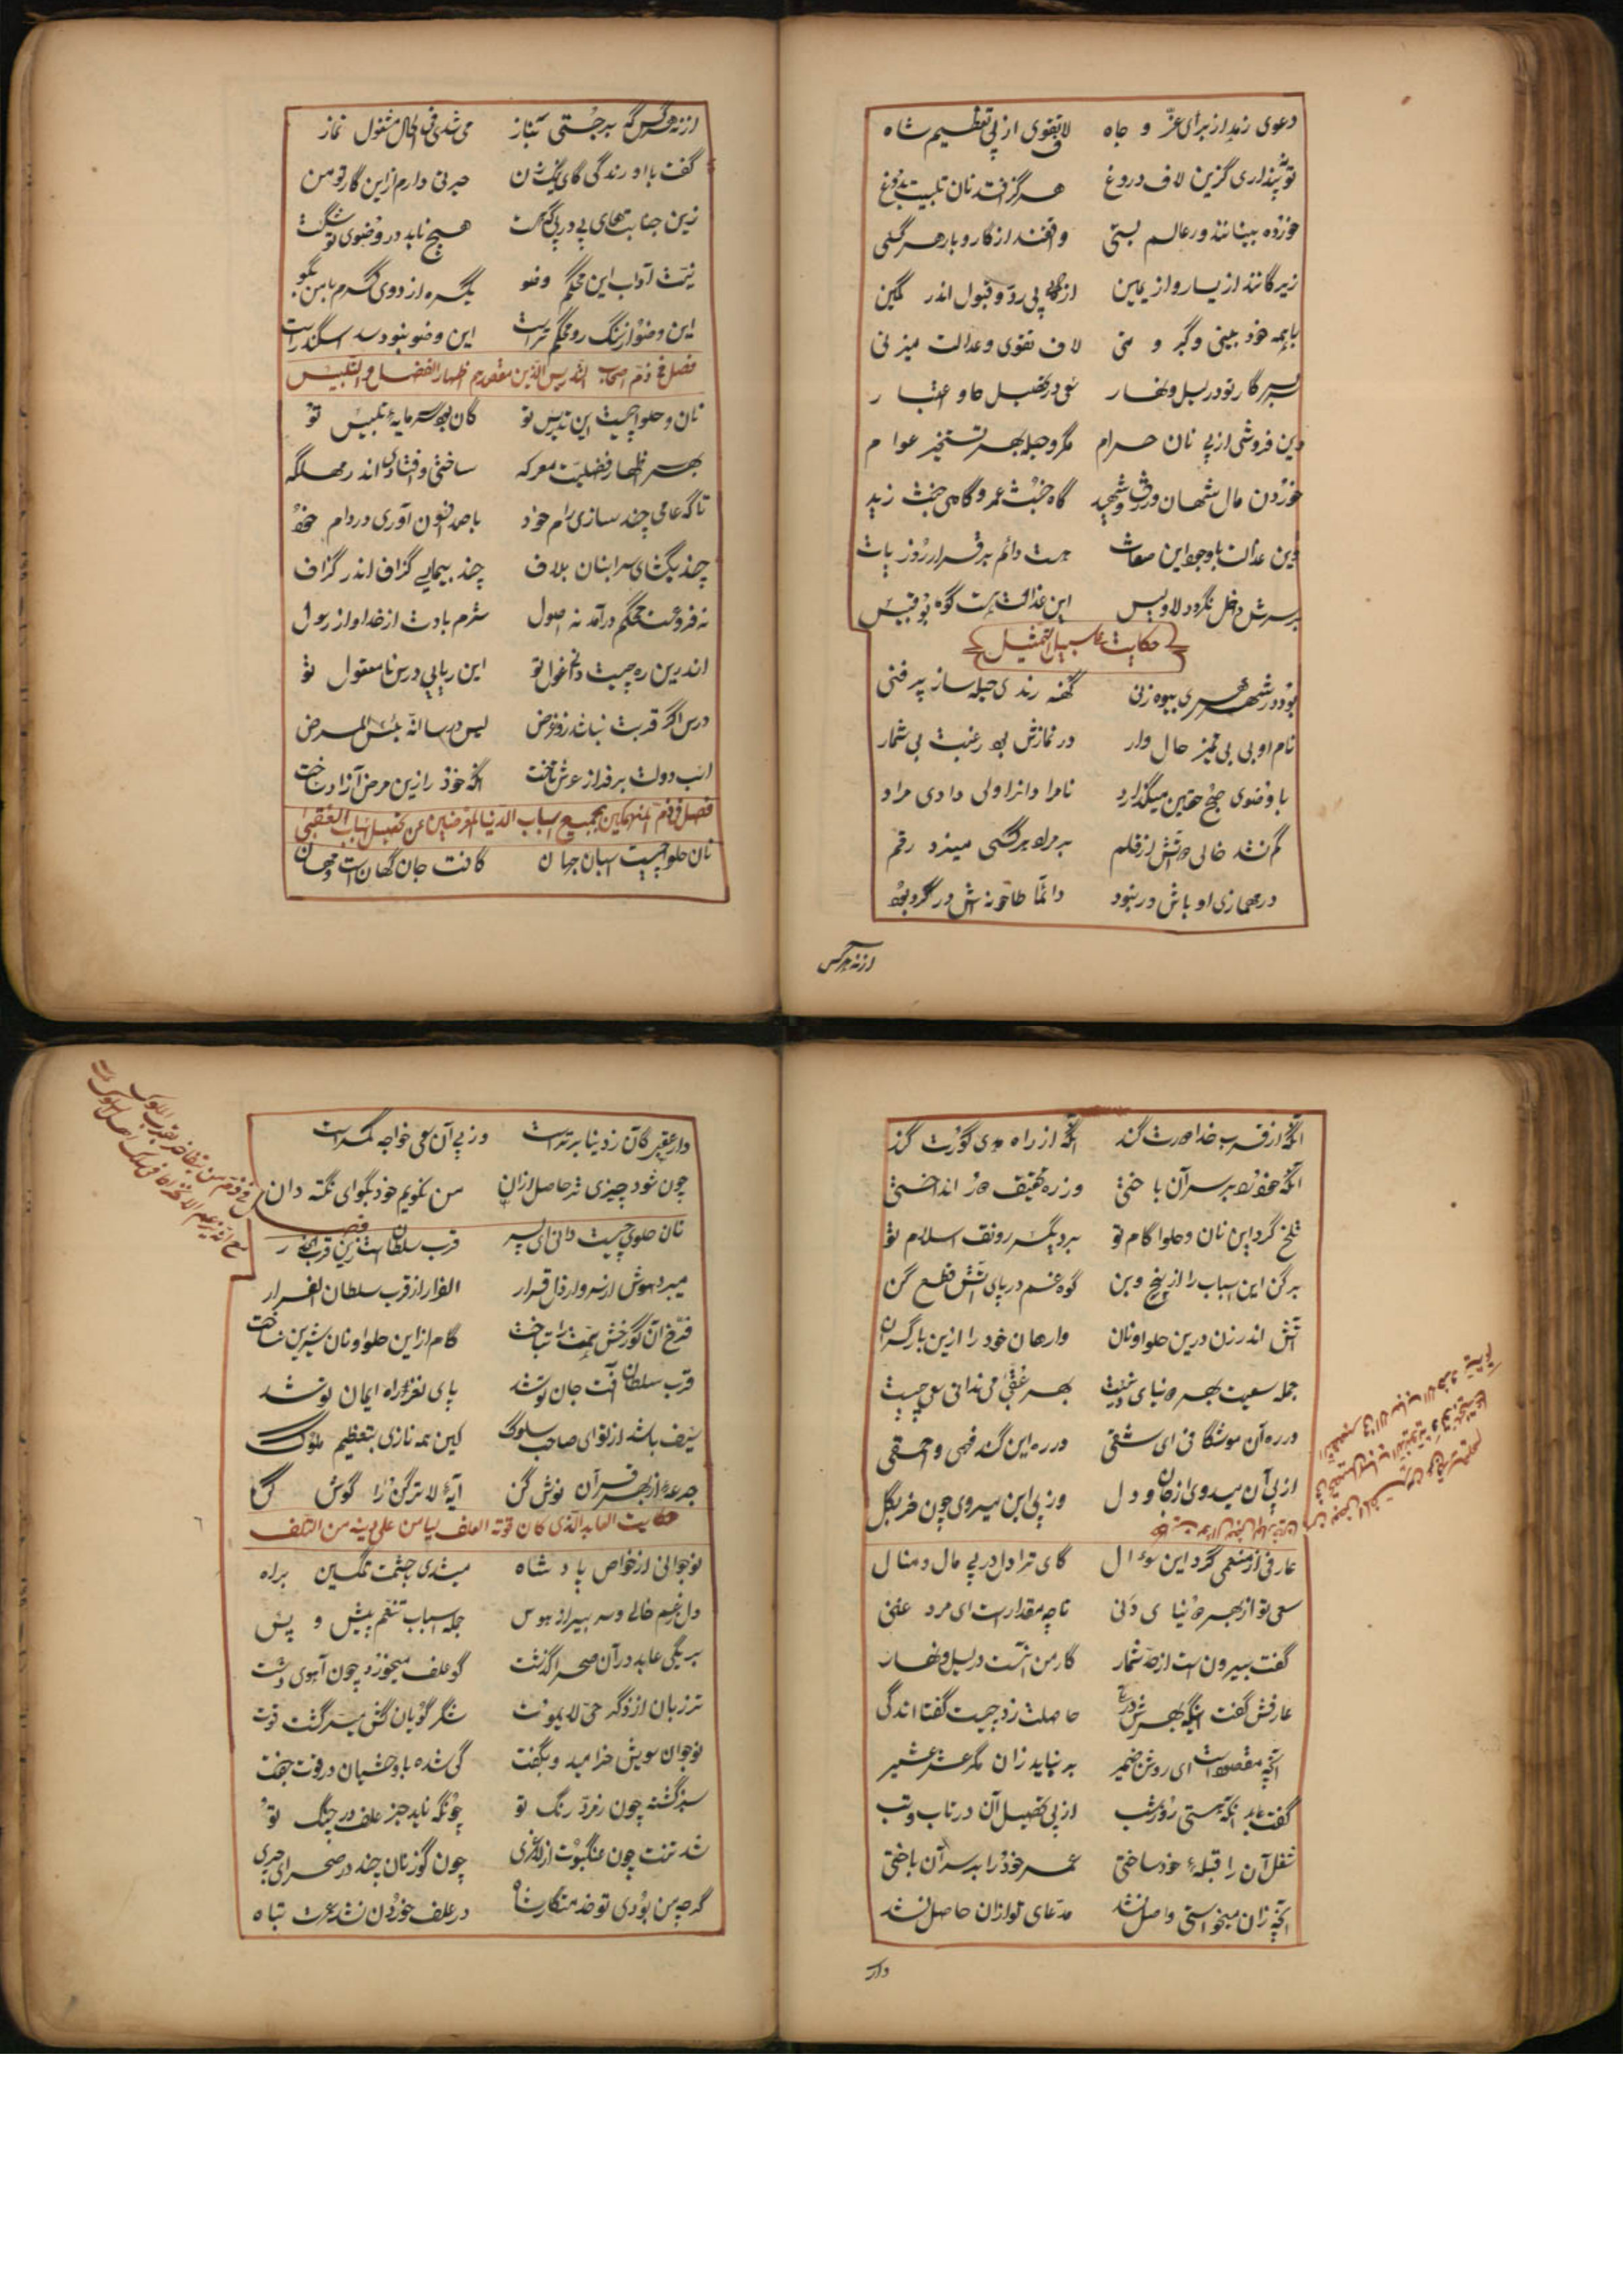 دعوی زهد از برای عزّ و جاه لاف تقوی از پی تعظیم شاه
تو نپنداری کزین لاف دروغ هرگز افتد نان تلبیست بدوغ
خورده بینانند در عالم بسی واقفند از کار و بار هر کسی
زیرکانند از یسار و از یمین از پی ردّ و قبول اندر کمین
با همه خود بینی و کبر و منی لاف تقوی و عدالت میزنی
سر بسر کار تو در لیل و نهار سعی در تحصیل جاه و اعتبار
دین فروشی از پی نان حرام مکر و حیله بهر تسخیر عوام
خوردن مال شهان و زرق و شید گاه خبث عمرو و گاهی خبث زید
وین عدالت با وجود این صفات هست دائم برقرار و بر ثبات
بر سرش داخل نگردد لا و لیس این عدالت هست کوه بوقبیس
حکایت علی سبیل التمثیل
بود در شهر هری بیوه زنی کهنه رندی حیله ساز پرفنی
نام او بی بی تمیز خال دار در نمازش بود رغبت بی شمار
با وضوی صبح خفتن میگذارد نامرادانرا ولی دادی مراد
کم نشد خالی دواتش از قلم بر مراد هر کسی میزد رقم
در مهمسازی اوباش و رنود دائما طاحونه‌اش در گرد بود
از ته هر کس
از ته هر کس که برجستی بناز می شدی فی الحال مشغول نماز
گفت با او رندکی کای نیک زن حیرتی دارم ازین کار تو من
زین جنابتهای پی در پی که هست هیچ ناید در وضوی تو شکست
نیت و آداب این محکم وضو یکره از روی کرم با من بگو
این وضو از سنگ رو محکم تر است این وضو نبود سد اسکندر است
فصل فی ذمّ اصحاب التدریس الذین مقصدهم اظهار الفضل و التلبیس
نان و حلوا چیست این تدریس تو کان بود سرمایهٔ تلبیس تو
بهر اظهار فضیلت معرکه ساختی و افتادی اندر مهلکه
تا که عامی چند سازی رام خود با صد افسون آوری در دام خود
چند بگشائی سر انبان بلاف چند پیمایی گزاف اندر گزاف
نه فروعت محکم آمد نه اصول شرم بادت از خدا و از رسول
اندرین ره چیست دانی غول تو این ریایی درس نامعقول تو
درس اگر قربت نباشد زو غرض لیس درسا انه بئس المرض
اسب دولت بر فراز عرش تاخت آنکه خود را زین مرض آزاد ساخت
فصل فی ذم المنهمکین بجمیع اسباب الدنیا المعرضین عن تحصیل اسباب العقبی
نان و حلوا چیست اسباب جهان کافت جان کهان است و مهان
آنکه از قرب خدا دورت کند آنکه از راه هدی کورت کند
آنکه خود را بر سر آن باختی وز ره تحقیق دور انداختی
تلخ کرد این نان و حلوا کام تو برد یکسر رونق اسلام تو
برکن این اسباب را از بیخ و بن
آتش اندر زن درین حلوا و نان وارهان خود را ازین بار گران
جمله سعیت بهر دنیای دنیست بهر عقبی می ندانی سعی چیست
در ره آن موشکافی ای شقی در ره این کند فهمی و احمقی
از پی آن میدوی از جان و دل وز پی این میروی چون خر بگل
عارفی از منعمی کرد این سوءال کای ترا دل در پی مال و منال
سعی تو از بهر دنیای دنی تا چه مقدار است ای مرد غنی
گفت بیرون است از حد شمار کار من اینست در لیل و نهار
عارفش گفت اینکه بهرش در تکی حاصلت زو چیست گفتا اندکی
آنچه مقصود است ای روشن ضمیر برنیاید زان مگر عشر عشیر
گفت عابد آنکه هستی روز و شب از پی تحصیل آن در تاب و تب
شغل آن را قبلهٔ خود ساختی عمر خود را بر سر آن باختی
آنچه زان میخواستی واصل نشد مدّعای تو از آن حاصل نشد
دار
دار عقبی کان ز دنیا برتر است وز پی آن سعی خواجه کمتر است
چون شود چیزی ترا حاصل از آن من نگویم خود بگو ای نکته دان
نان و حلوا چیست دانی ای پسر قرب سلطان است زین قرب الحذر
میبرد هوش از سر و از دل قرار الفرار از قرب سلطان الفرار
فرّخ آن کو رخش همّت را بتاخت کام ازین حلوا و نان شیرین نساخت
قرب سلطان آفت جان تو شد پای بند راه ایمان تو شد
حیف باشد از تو ای صاحب سلوک کین همه نازی بتعظیم ملوک
جرعهٔ از نهر قرآن نوش کن آیهٔ لا ترکنوا را گوش کن
حکایت العابد الذی کان قوته العلف
نوجوانی از خواص پادشاه میشدی با حشمت و تمکین براه
دل ز غم خالی و سر پر از هوس جمله اسباب تنعم پیش و پس
بر یکی عابد در آن صحرا گذشت کو علف میخورد چون آهوی دشت
تر زبان از ذکر حیّ لا یموت شکر گویان کش میسّر گشت قوت
نوجوان سویش خرامید و بگفت کی شده با وحشیان در قوت جفت
سبز گشته چون زمرّد رنگ تو چونکه ناید جز علف در چنگ تو
شد تنت چون عنکبوت از لاغری چون گوزنان چند در صحرا چری
گر چو من بودی تو خدمتکار شاه در علف خوردن نشد عمرت تباه